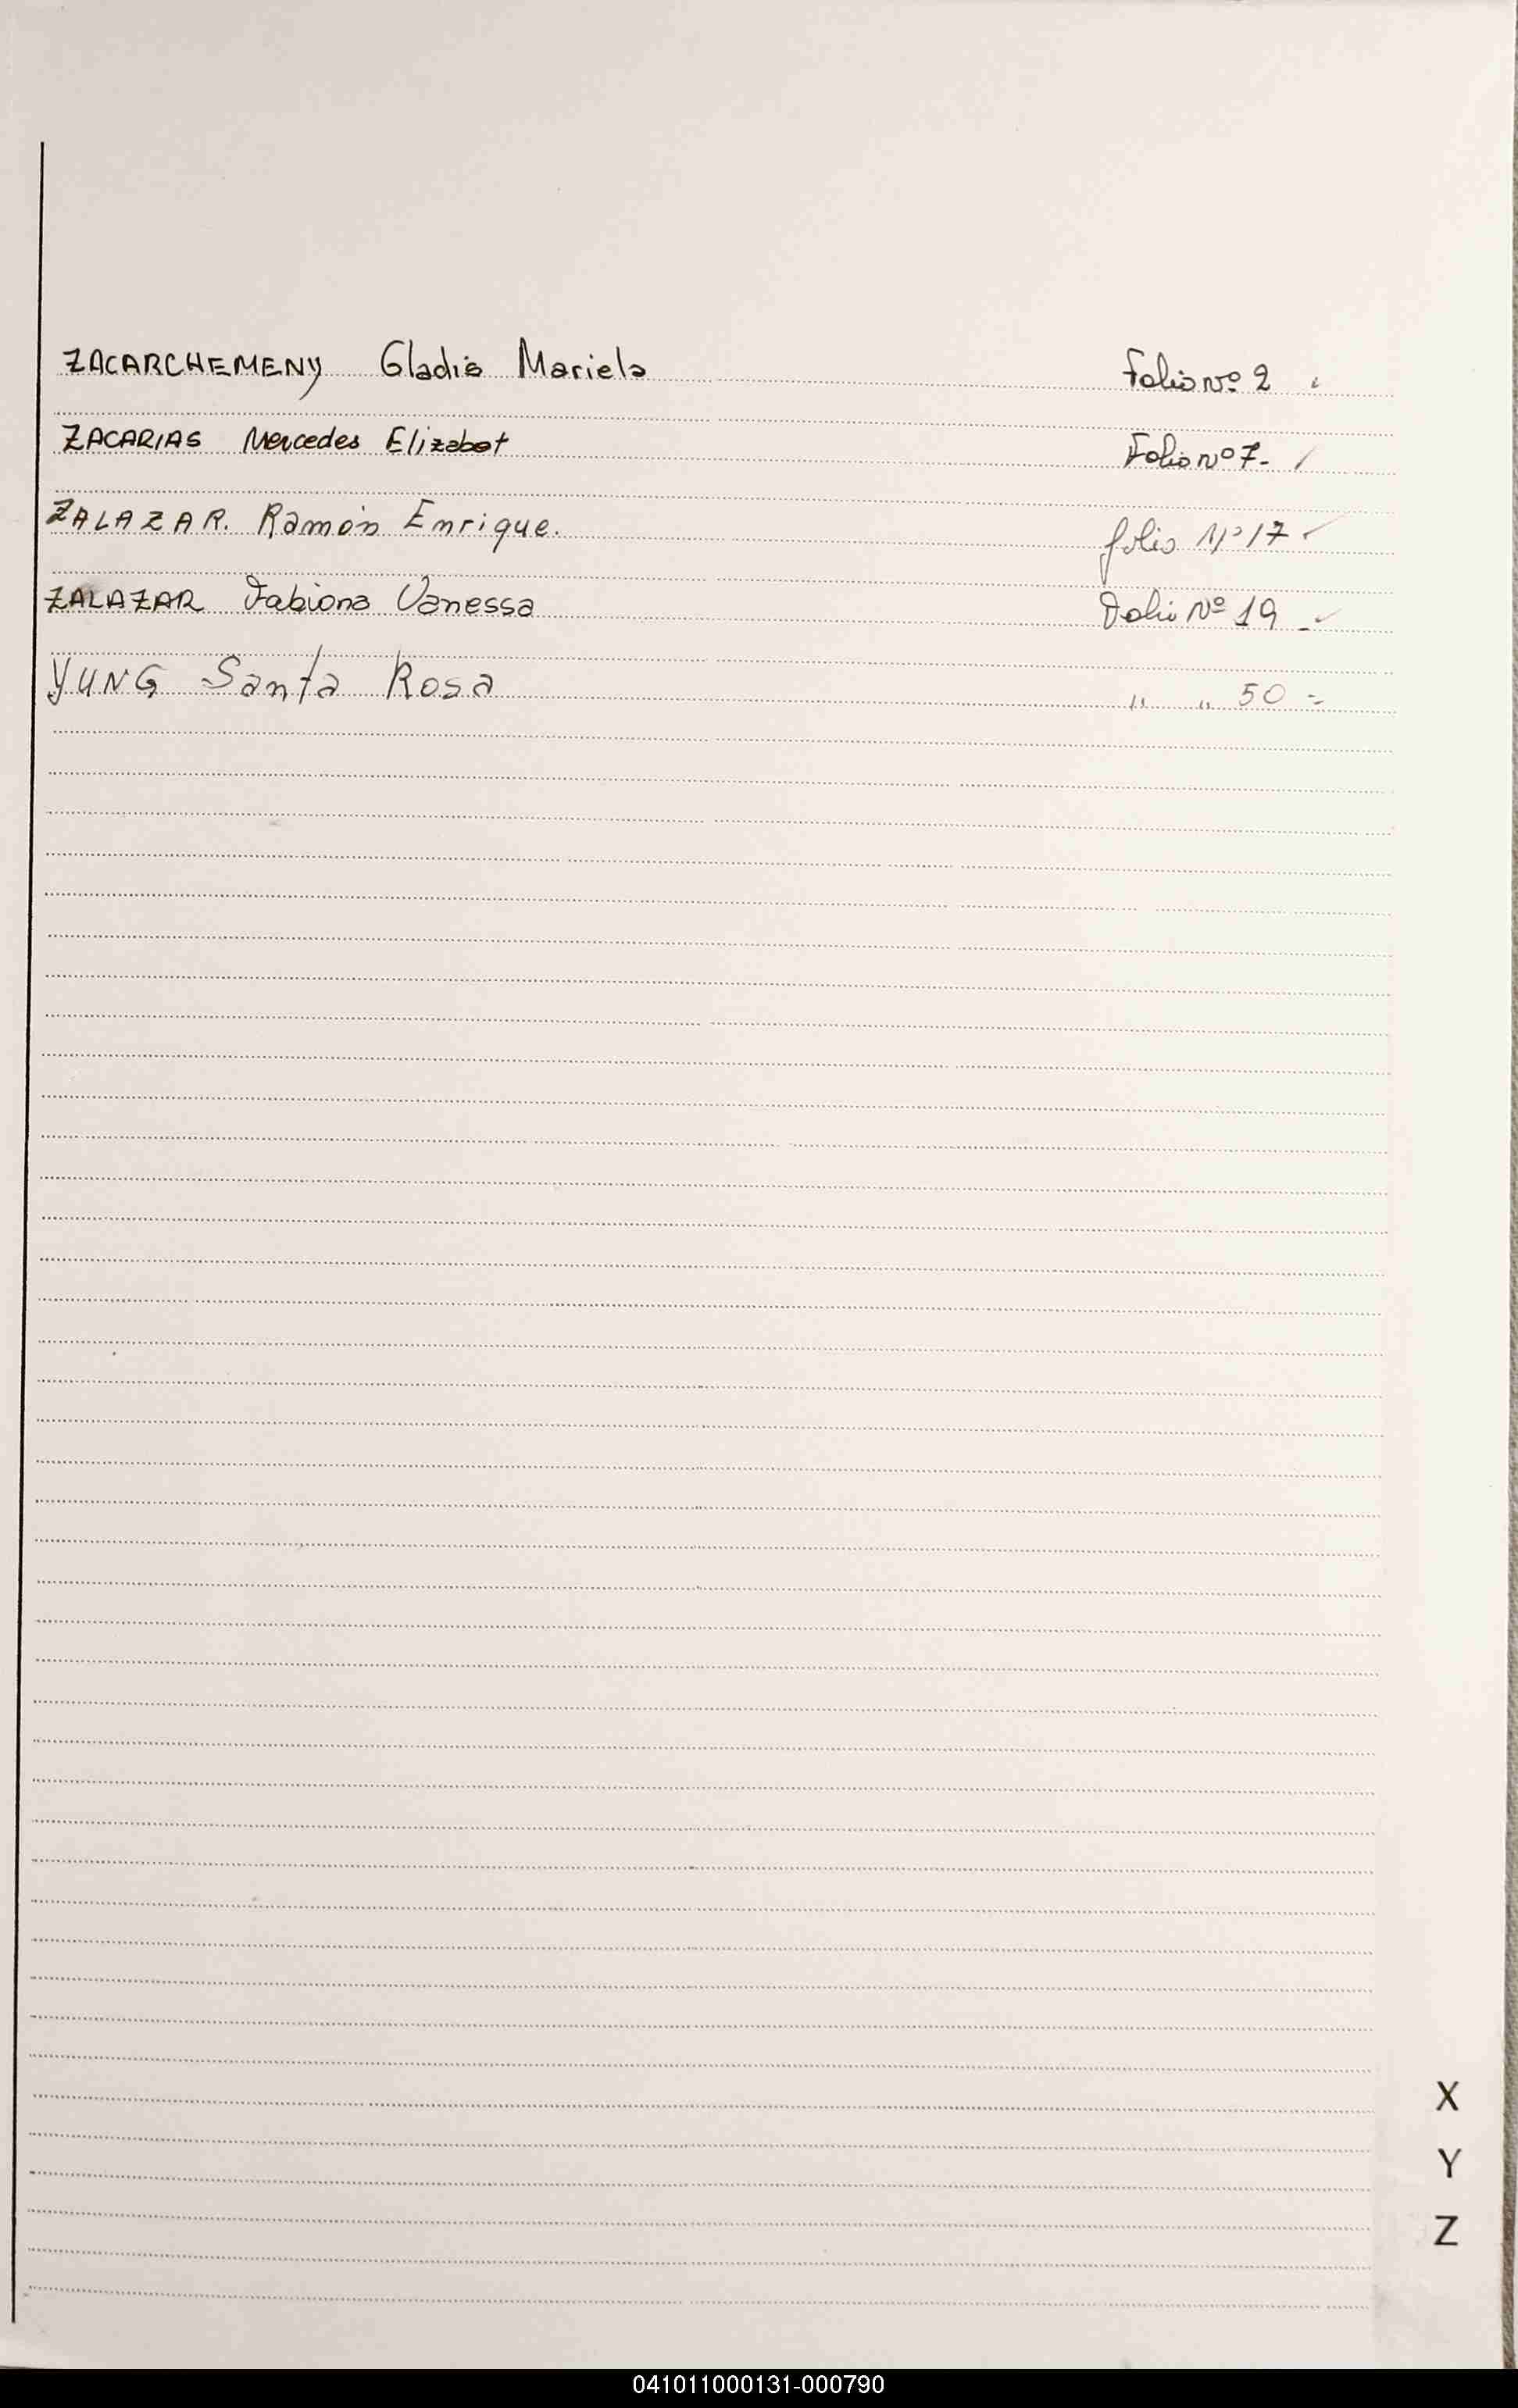 ZACARCHEMENY Gladis Mariela Folio Nº 2
ZACARIAS Mercedes Elizabet Folio Nº 7-
ZALAZAR. Ramón Enrique. folio Nº 17
ZALAZAR Fabiana Vanessa Folio Nº 19 -
YUNG Santa Rosa " " 50 =
X
Y
Z
041011000131-000790